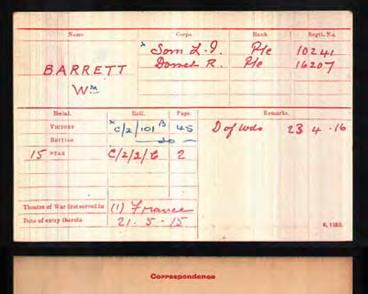 Name Corps Rank Regtl. No.
BARRETT x Som L.I. Pte 10241
Wm Dorset R. Pte 16207
Medal. Roll. Page. Remarks.
VICTORY x C/2/101 B 45 D of Wds 23 4 -16
BRITISH -do-
15 STAR C/2/2/C 2
Theatre of War first served in (1) France
Date of entry therein 21. 5. 15
K. 1380.
Correspondence